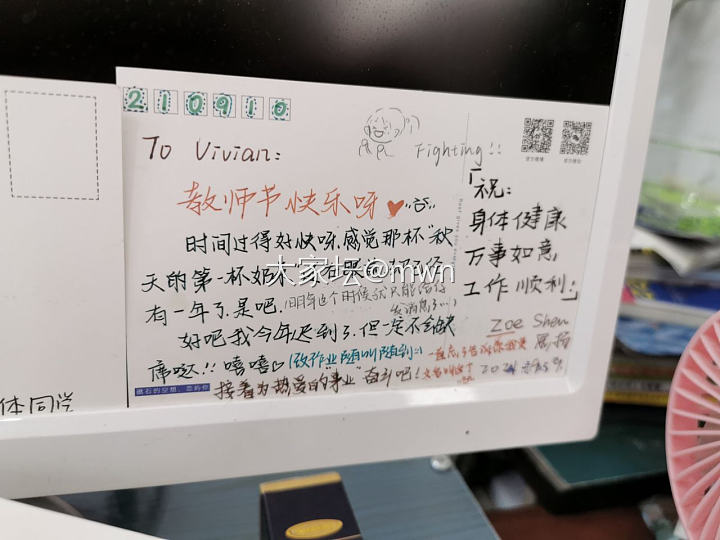 210910
To Vivian:
Fighting!!
官方微博
官方微信
教师节快乐呀
时间过得好快呀,感觉那杯"秋
天的第一杯奶茶"
有一年了.是吧.明年这个时候就只能给你
发消息了
好吧我今年迟到了.但一定不会缺
席哒!!嘻嘻 做作业随叫随到:)
接着为热爱的"事业"奋斗吧!
祝:
身体健康
万事如意
工作顺利!
Zoe Shen
大家坛@mwn
体同学